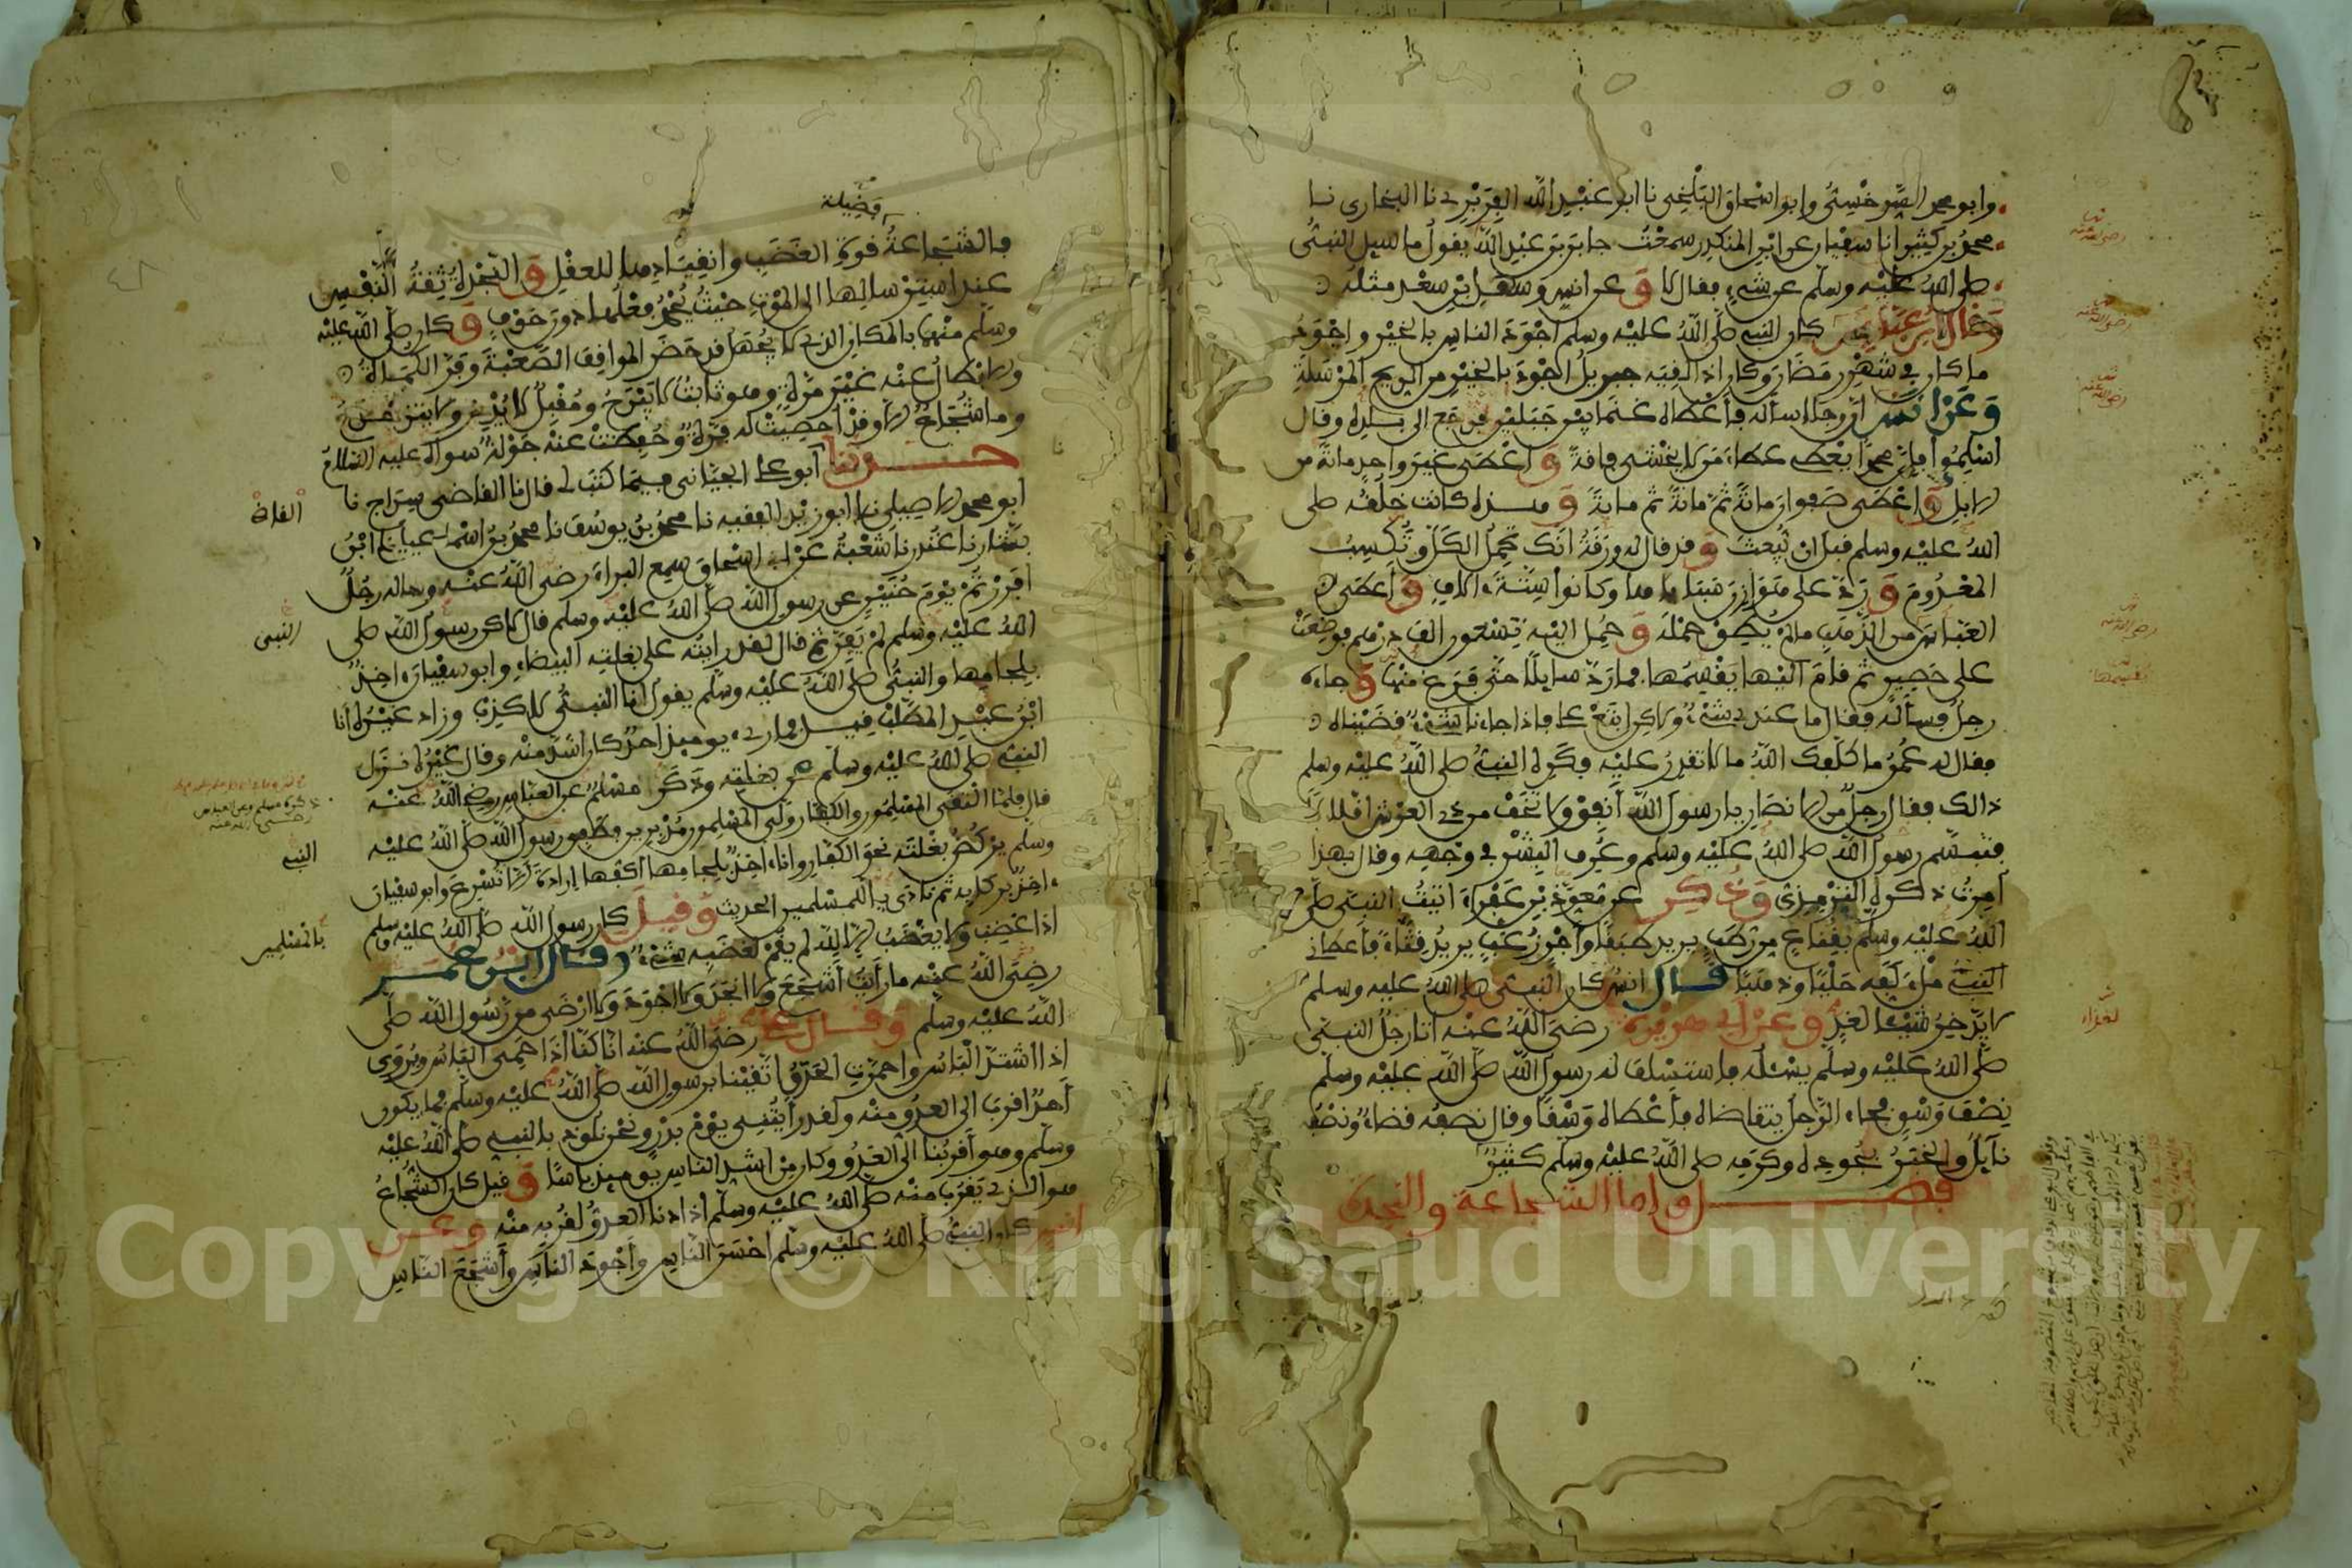 وابو محمد السرخسي وابو اسحاق البلخي نا ابو عبد الله الفربري نا البخاري نا
محمد بن كثير انا سفيان عن ابن المنكدر سمعت جابر بن عبد الله يقول ما سيل النبي
صلى الله عليه وسلم عن شيء فقال لا وعن انس وسهل بن سعد مثله
وقال ابن عباس كان النبي صلى الله عليه وسلم اجود الناس بالخير واجود
ما كان في شهر رمضان وكان اذا لقيه جبريل اجود بالخير من الريح المرسلة
وعن انس ان رجلا سأله فأعطاه غنما بين جبلين فرجع الى بلده وقال
اسلموا فإن محمدا يعطي عطاء من لا يخشى فاقة واعطى غير واحد مائة من
الابل واعطى صفوان مائة ثم مائة ثم مائة وهذه كانت خلقه صلى
الله عليه وسلم قبل ان يبعث وقد قال له ورقة انك تحمل الكل وتكسب
المعدوم ورد على هوازن سباياها وكانوا ستة ءالاف واعطى
العباس من الذهب ما لم يطق حمله وحمل اليه تسعون الف درهم فوضعت
على حصير ثم قام اليها يقسمها فما رد سايلا حتى فرغ منها وجاءه
رجل فسأله فقال ما عندي شيء ولاكن ابتع علي فإذا جاءنا شيء قضيناه
فقال له عمر ما كلفك الله ما لا تقدر عليه فكره النبي صلى الله عليه وسلم
ذالك فقال رجل من الانصار يا رسول الله أنفق ولا تخف من ذي العرش اقلالا
فتبسم رسول الله صلى الله عليه وسلم وعرف البشر في وجهه وقال بهذا
أمرت ذكره الترمذي وذكر عن معوذ بن عفراء اتيت النبي صلى
الله عليه وسلم بقناع من رطب يريد طبقا وأجر زغب يريد قثاء فأعطاني
النبي ملء كفه حليا وذهبا قال انس كان النبي صلى الله عليه وسلم
لا يدخر شيئا لغد وعن ابي هريرة رضي الله عنه اتا رجل النبي
صلى الله عليه وسلم يسئله فاستسلف له رسول الله صلى الله عليه وسلم
نصف وسق فجاء الرجل يتقاضاه فأعطاه وسقا وقال نصفه قضاء ونصفه
نايل والخبر بجوده وكرمه صلى الله عليه وسلم كثير
فصل واما الشجاعة والنجدة
فضيلة
فالشجاعة قوة الغضب وانقيادها للعقل والنجدة ثقة النفس
عند استرسالها الى الموت حيث يحمد فعلها دون خوف وكان صلى الله عليه
وسلم منهما بالمكان الذي لا يجهل قد حضر المواقف الصعبة وفر الكماة
والابطال عنه غير مرة وهو ثابت لا يبرح ومقبل لا يدبر ولا يتزحزح
وما شجاع الا وقد احصيت له فرة وحفظت عنه جولة سواه عليه السلام
حدثنا أبو علي الجياني فيما كتب لي قال نا القاضي سراج نا
ابو محمد الاصيلي نا ابو زيد الفقيه نا محمد بن يوسف نا محمد بن اسمعيل نا ابن
بشار نا غندر نا شعبة عن ابي اسحاق سمع البراء رضي الله عنه وساله رجل
افررتم يوم حنين عن رسول الله صلى الله عليه وسلم قال لاكن رسول الله صلى
الله عليه وسلم لم يفر ثم قال لقد رايته على بغلته البيضاء وابو سفيان ءاخذ
بلجامها والنبي صلى الله عليه وسلم يقول انا النبي لا كذب وزاد غيره انا
ابن عبد المطلب قيل فما رءي يوميذ احد كان اشد منه وقال غيره نزل
النبي صلى الله عليه وسلم عن بغلته وذكر مسلم عن العباس رضي الله عنه
قال فلما التقى المسلمون والكفار ولى المسلمون مدبرين فطفق رسول الله صلى الله عليه
وسلم يركض بغلته نحو الكفار وانا ءاخذ بلجامها اكفها إرادة الا تسرع وابو سفيان
ءاخذ بركابه ثم نادى يا للمسلمين الحديث وقيل كان رسول الله صلى الله عليه وسلم
اذا غضب ولا يغضب الا لله لم يقم لغضبه شيء وقال ابن عمر
رضي الله عنه ما رأيت أشجع ولا انجد ولا اجود ولا ارضى من رسول الله صلى
الله عليه وسلم وقال علي رضي الله عنه انا كنا اذا حمي البأس ويروى
اذا اشتد البأس واحمرت الحدق اتقينا برسول الله صلى الله عليه وسلم فما يكون
أحد اقرب الى العدو منه ولقد رأيتني يوم بدر ونحن نلوذ بالنبي صلى الله عليه
وسلم وهو أقربنا الى العدو وكان من اشد الناس يوميذ بأسا وقيل كان الشجاع
هو الذي يقرب منه صلى الله عليه وسلم اذا دنا العدو لقربه منه وعن
انس كان النبي صلى الله عليه وسلم احسن الناس وأجود الناس وأشجع الناس
النبي
النبي
يا للمسلمين
Copyright © King Saud University